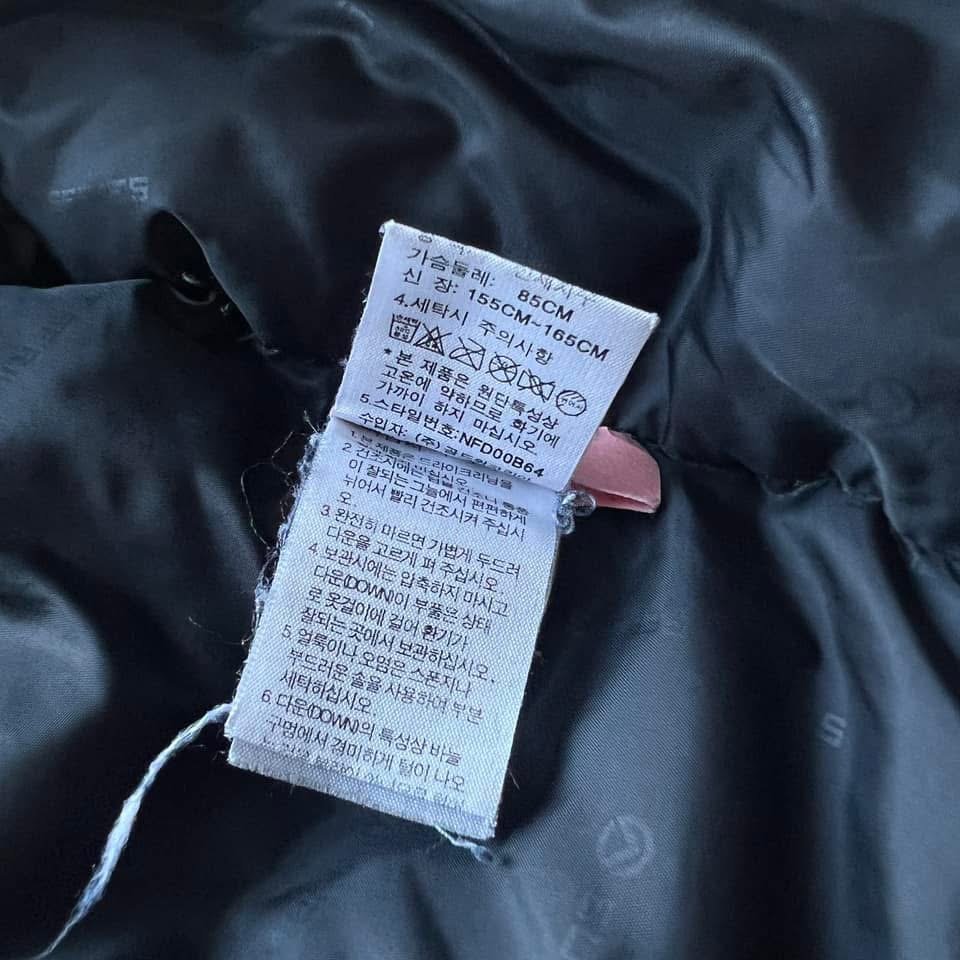 가슴둘레: 85CM
신 장: 155CM~165CM
4.세탁시 주의사항
*본 제품은 원단특성상
고온에 약하므로 화기에
가까이 하지 마십시오
5.스타일번호:NFD00B64
수입자: (주)
2.건조
이 잘되는 그늘에서 편편하게
뉘어서 빨리 건조시켜 주십시
오.
3.완전히 마르면 가볍게 두드려
다운을 고르게 펴 주십시오.
4.보관시에는 압축하지 마시고
다운(DOWN)이 부풀은 상태
로 옷걸이에 걸어 환기가
잘되는 곳에서 보관하십시오.
5.얼룩이나 오염은 스폰지나
부드러운 솔을 사용하여 부분
세탁하십시오
6.다운(DOWN)의 특성상 바늘
구멍에서 경미하게 털이 나오